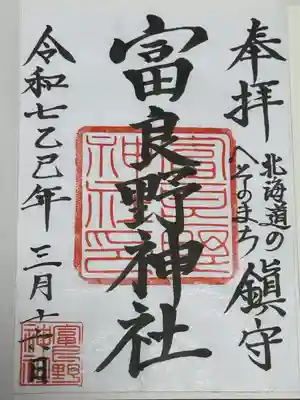 奉拝
北海道の
へそのまち
鎮守
富良野神社
富良野
神社印
令和七乙巳年 三月十日
富良野
神社